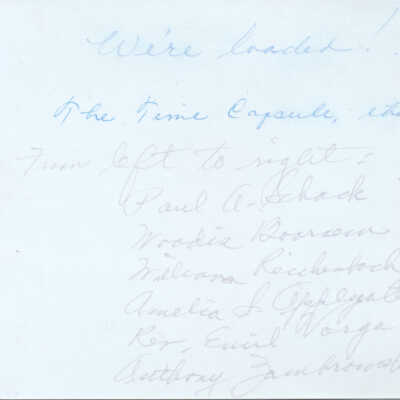 We're loaded!
The Time Capsule,
From left to right:
Paul A. Schack
Woodie
William Reichenbach
Amelia S. Applegate
Rev. Emil Varga
Anthony Zambrowsk